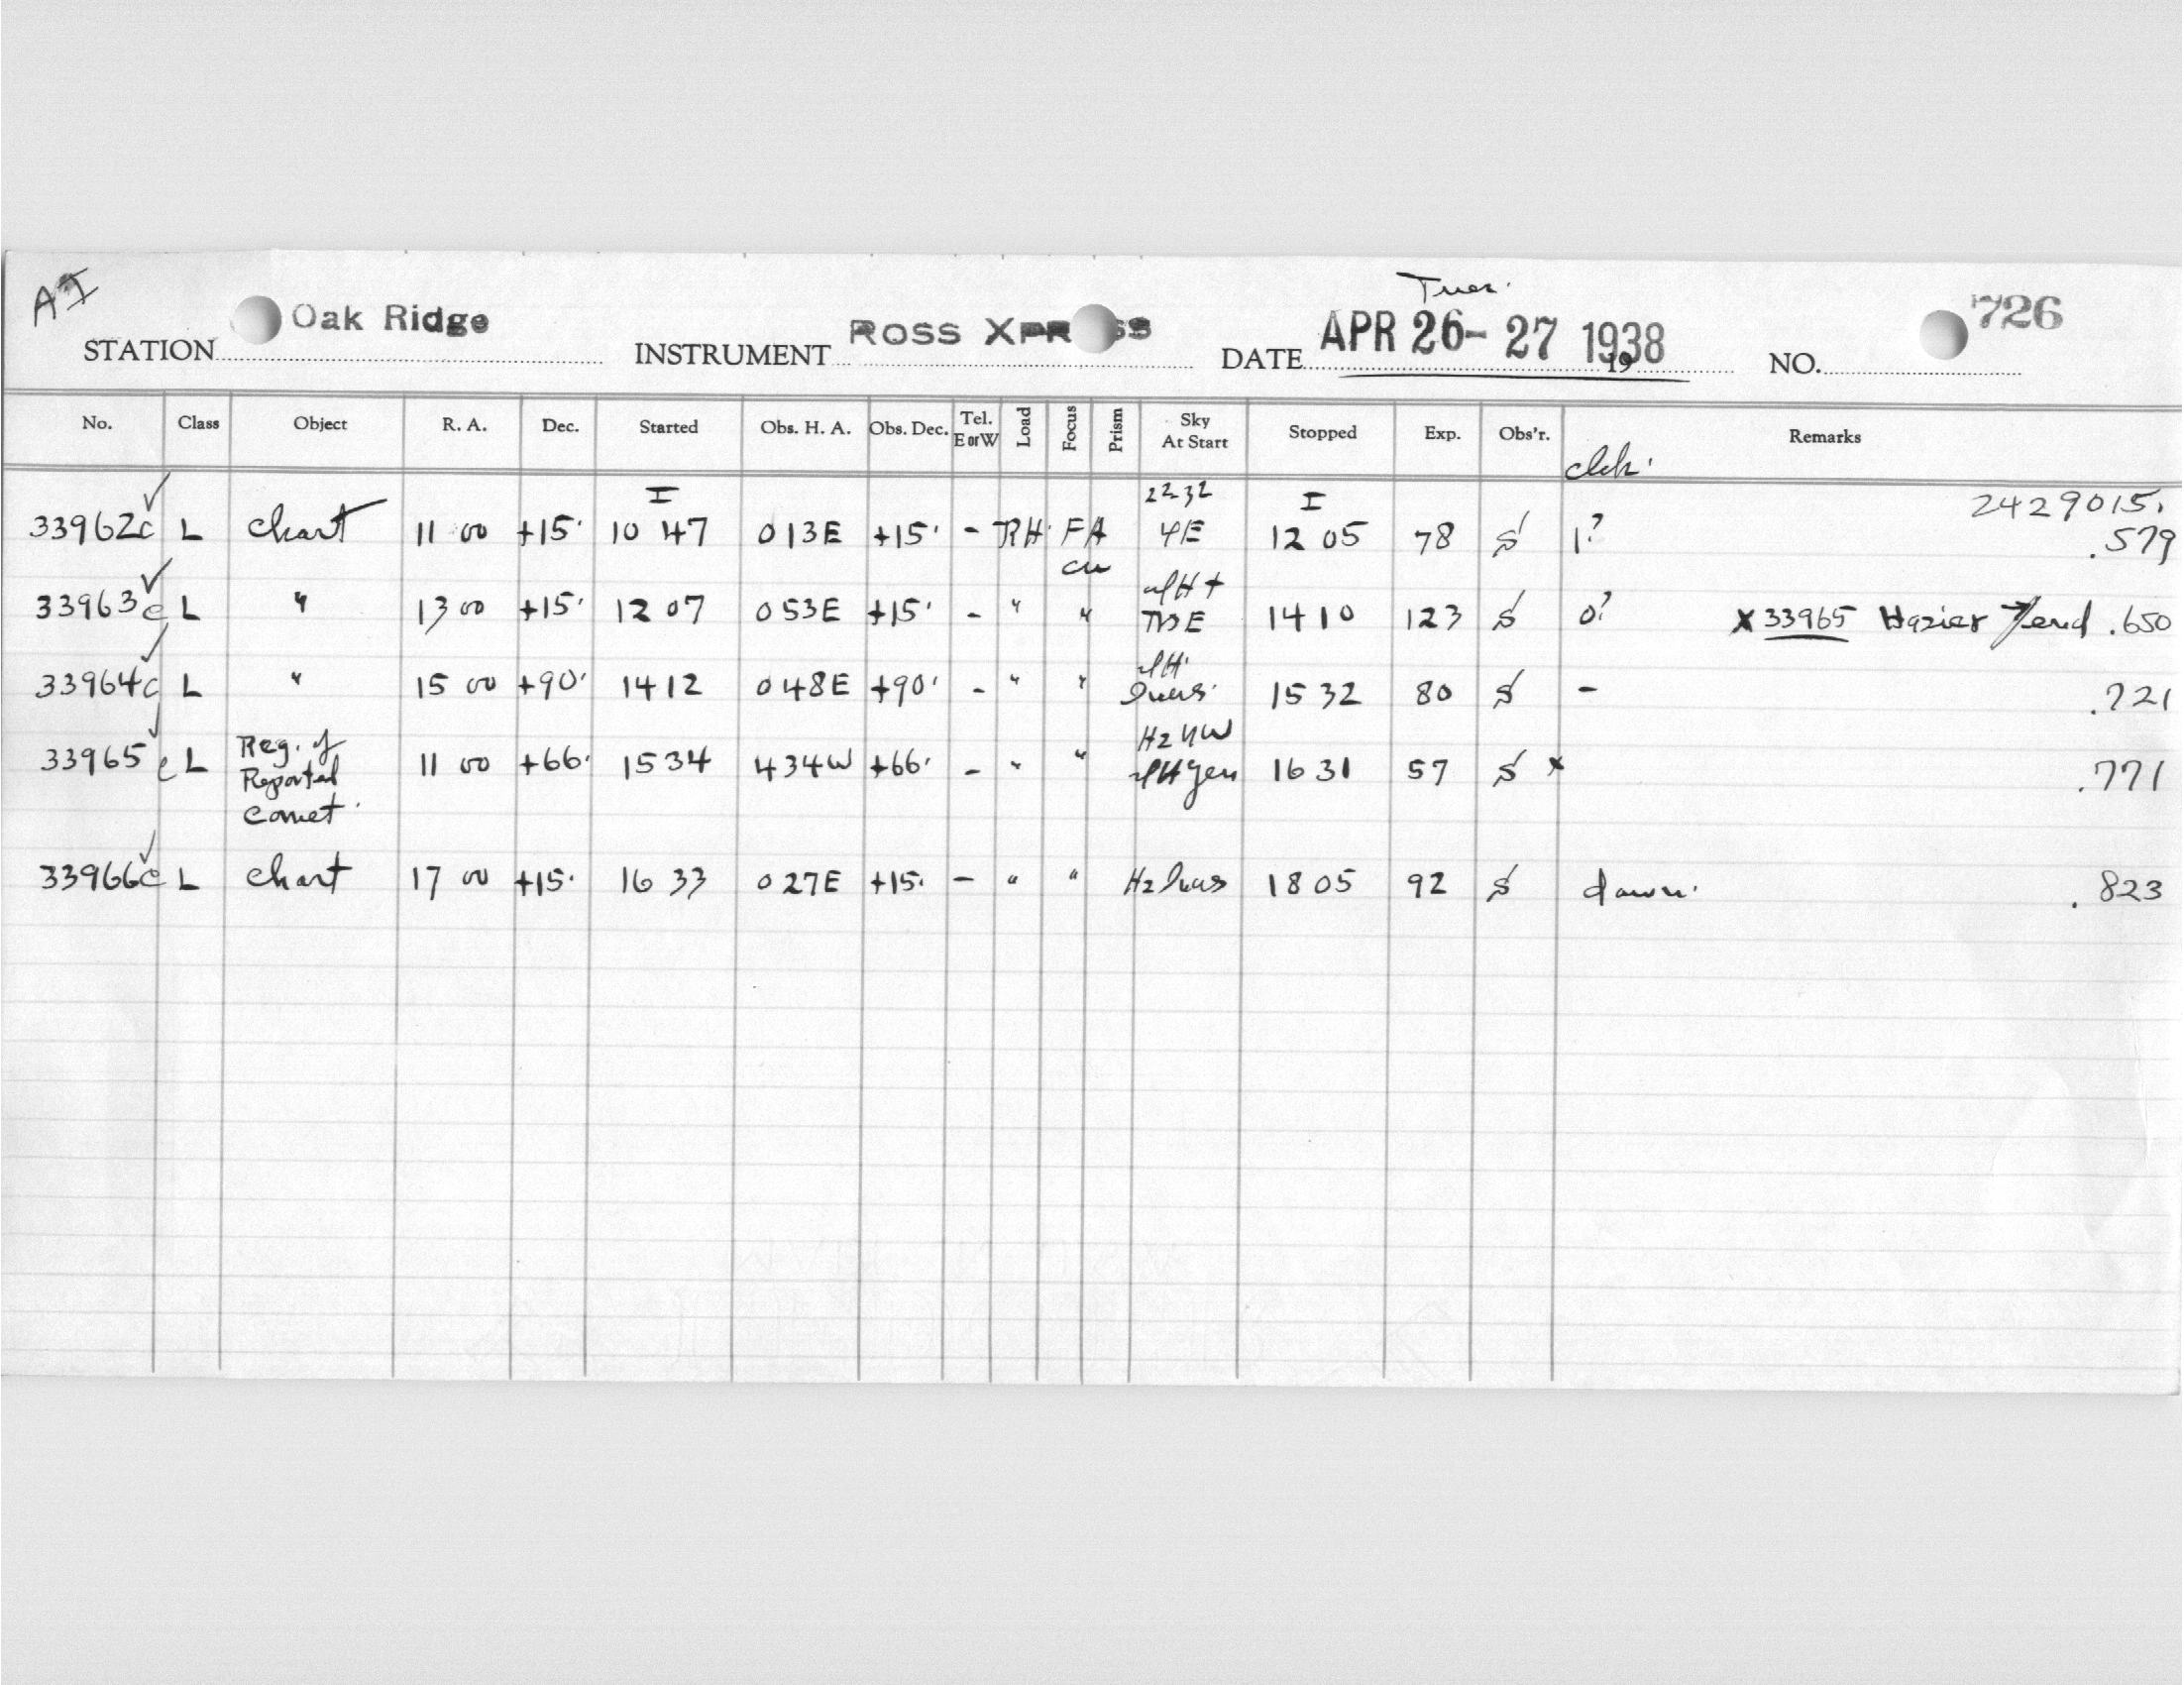 AI
Tues.
STATION Oak Ridge INSTRUMENT ROSS XPRESS DATE APR 26-27 1938 19 NO. 726
No. Class Object R. A. Dec. Started Obs. H. A. Obs. Dec. Tel. E or W Load Focus Prism Sky At Start Stopped Exp. Obs'r. Remarks
clck.
I 2232 I 2429015.
33962c L chart 11 00 +15° 10 47 013E +15° - RH FA 4E 12 05 78 S 1? .579
cu
33963c L " 13 00 +15° 12 07 053E +15° - " " E 14 10 123 S 0? x 33965 Hazier → end .650
33964c L " 15 00 +90° 14 12 048E +90° - " " 15 32 80 S - .721
33965c L Reg. of Reported Comet 11 00 +66° 15 34 434W +66° - " " Hz 4W gen 16 31 57 S x .771
33966c L chart 17 00 +15° 16 33 027E +15° - " " Hz 18 05 92 S dawn. .823